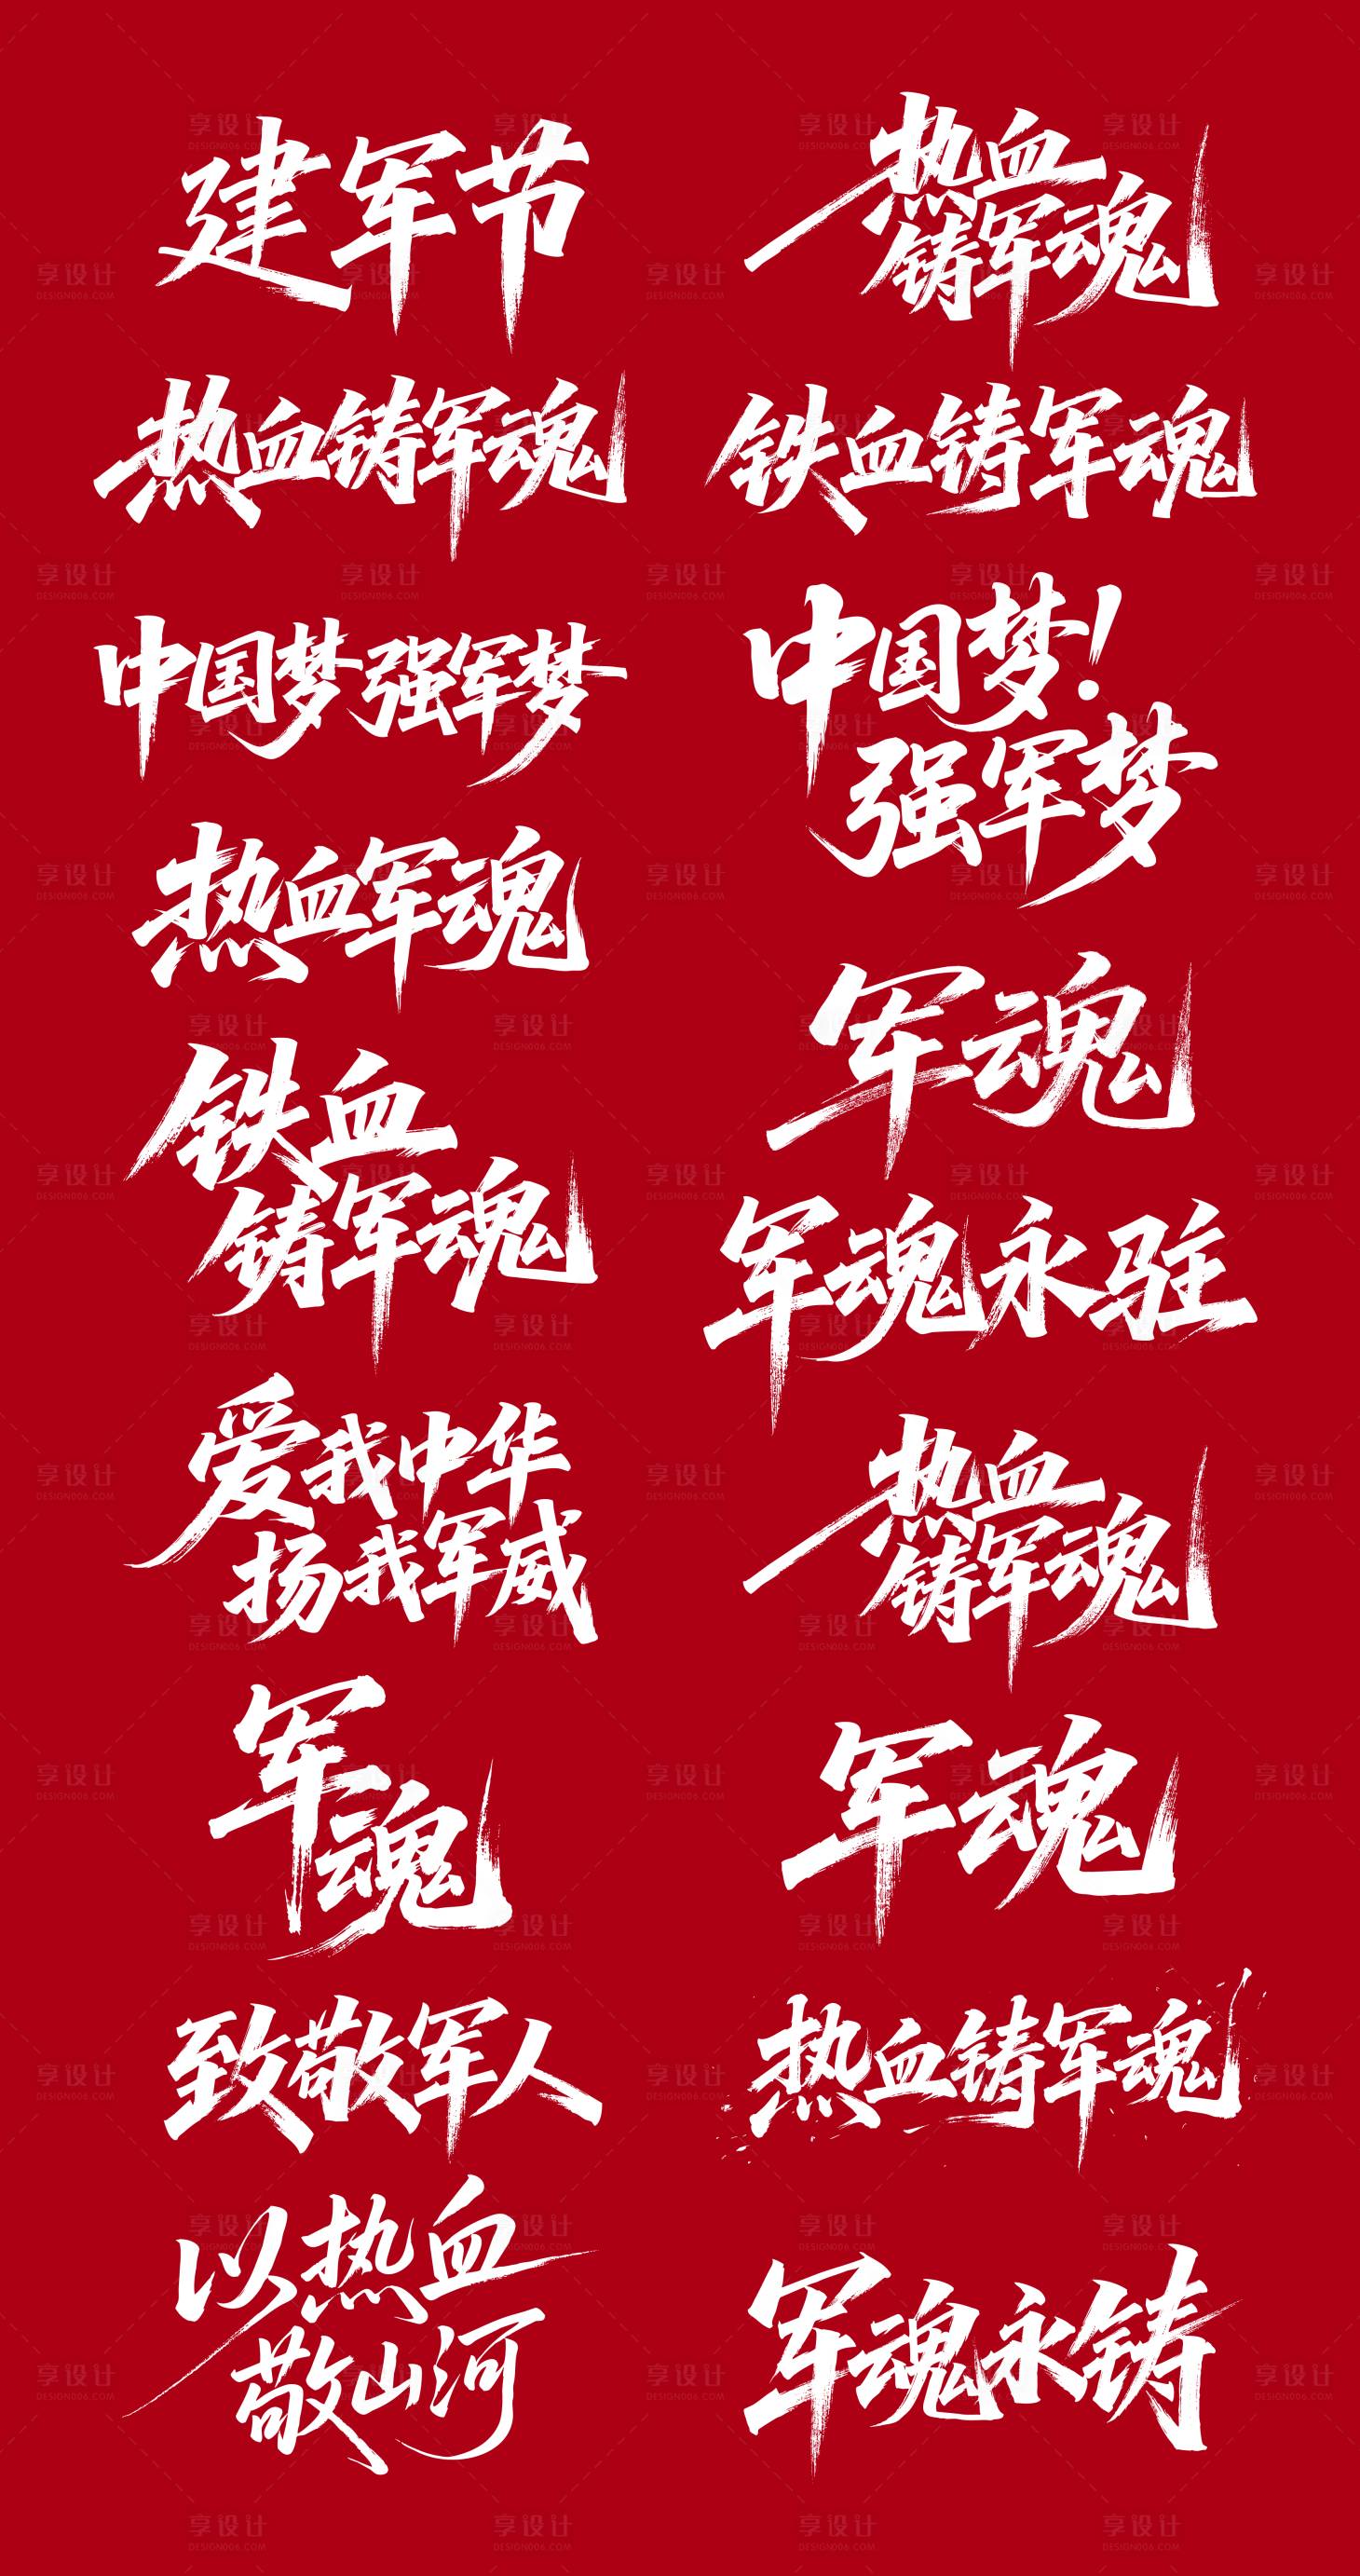 建军节
热血
铸军魂
热血铸军魂
铁血铸军魂
中国梦强军梦
中国梦！
强军梦
热血军魂
军魂
铁血
铸军魂
军魂永驻
爱我中华
扬我军威
热血
铸军魂
军
魂
军魂
致敬军人
热血铸军魂
以热血
敬山河
军魂永铸
享设计
DESIGN006.COM